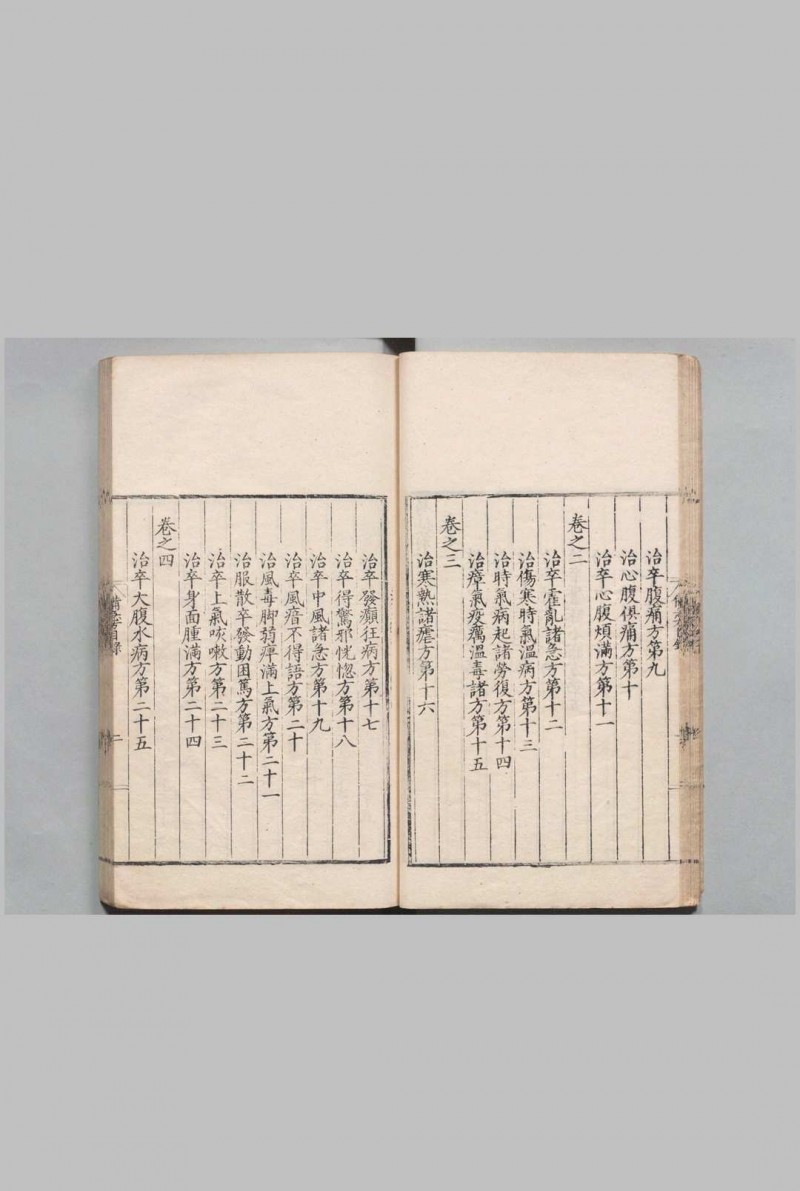 治卒腹痛方第九
治心腹俱痛方第十
治卒心腹煩滿方第十一
卷之二
治卒霍亂諸急方第十二
治傷寒時氣溫病方第十三
治時氣病起諸勞復方第十四
治瘴氣疫癘溫毒諸方第十五
卷之三
治寒熱諸瘧方第十六
治卒發癲狂病方第十七
治卒得驚邪恍惚方第十八
治卒中風諸急方第十九
治卒風瘖不得語方第二十
治風毒脚弱痺滿上氣方第二十一
治服散卒發動困篤方第二十二
治卒上氣咳嗽方第二十三
治卒身面腫滿方第二十四
卷之四
治卒大腹水病方第二十五